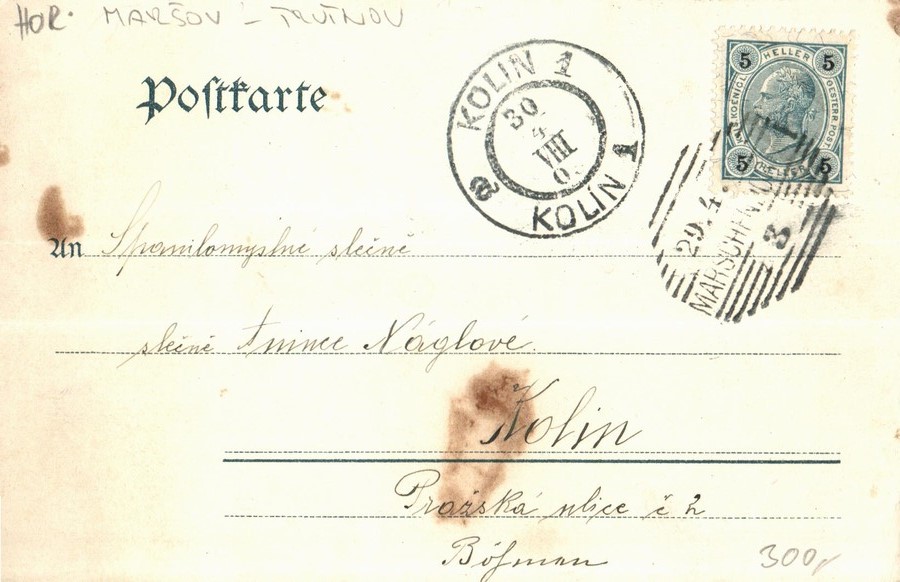 HOR. MARŠOV - TRUTNOV
Postkarte
KOLIN 1
30
4
VIII
0
KOLÍN 1
5 HELLER 5
5 HELLER 5
OESTERR. POST.
29.4
MARSCHEND
3
An Spanilomyslné slečně
slečně Anince Náglové.
Kolin
Pražská ulice č 2
Böhmen
300,-